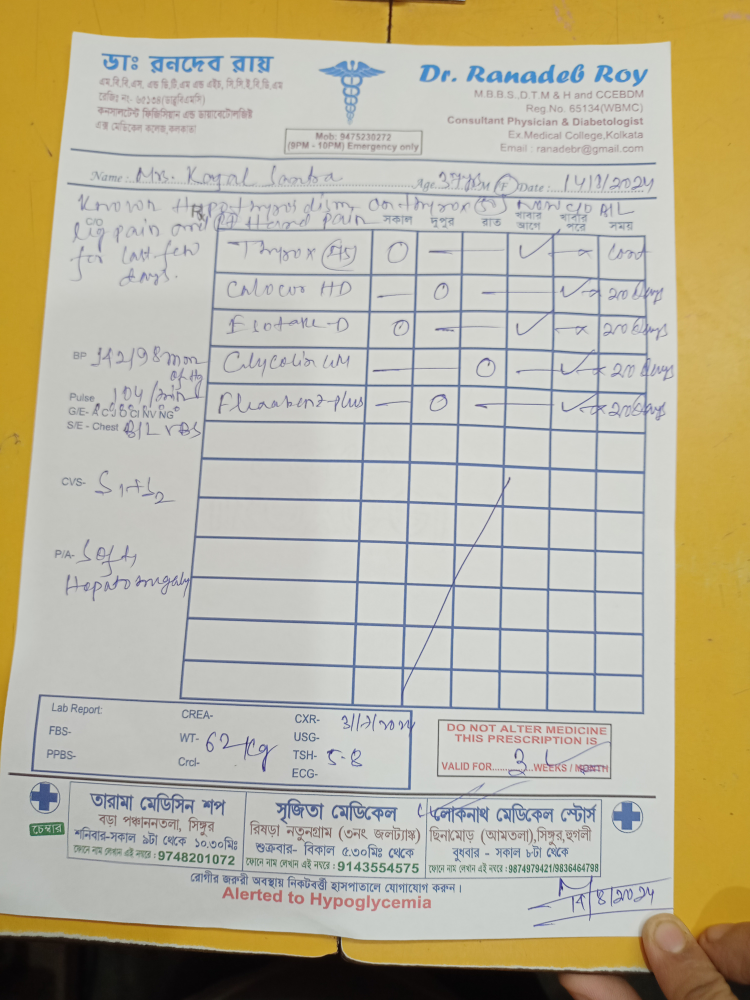 ডাঃ রনদেব রায়
এম.বি.বি.এস, এন্ড ডি.টি.এম এন্ড এইচ, সি.সি.ই.বি.ডি.এম
রেজিঃ নং- ৬৫১৩৪(ডাব্লুবিএমসি)
কনসালটেন্ট ফিজিসিয়ান এন্ড ডায়াবেটোলজিষ্ট
এক্স মেডিকেল কলেজ, কলকাতা
Mob: 9475230272
(9PM - 10PM) Emergency only
Dr. Ranadeb Roy
M.B.B.S.,D.T.M & H and CCEBDM
Reg No. 65134(WBMC)
Consultant Physician & Diabetologist
Ex.Medical College,Kolkata
Email : ranadebr@gmail.com
Name : Mrs. Kayal Age M F Date : 14/8/2024
Known on Thyrox (50) NOW C/O B/L
C/O leg pain and Hand pain
for last few
days.
সকাল দুপুর রাত খাবার আগে খাবার পরে সময়
Thyrox O — ✓ —x Cont
Calocor HD — O — ✓—x 20 days
Esotake-D O — ✓ —x 20 days
Glycolin UM — O ✓—x 20 days
plus — O — ✓—x 20 days
BP 142/98 mm of Hg
Pulse 104/min
G/E-
S/E - Chest B/L VBS
CVS- S1+S2
P/A- Soft,
Hepatomegaly
Lab Report:
FBS-
PPBS-
CREA-
WT- 62 kg
Crcl-
CXR- 31/7/2024
USG-
TSH- 5-8
ECG-
DO NOT ALTER MEDICINE
THIS PRESCRIPTION IS
VALID FOR.......3...WEEKS / MONTH
চেম্বার
তারামা মেডিসিন শপ
বড়া পঞ্চাননতলা, সিঙ্গুর
শনিবার-সকাল ৯টা থেকে ১০.৩০মিঃ
ফোনে নাম লেখান এই নম্বরে : 9748201072
সৃজিতা মেডিকেল
রিষড়া নতুনগ্রাম (৩নং জলট্যাঙ্ক)
শুক্রবার- বিকাল ৫.৩০মিঃ থেকে
ফোনে নাম লেখান এই নম্বরে : 9143554575
লোকনাথ মেডিকেল স্টোর্স
ছিনামোড় (আমতলা),সিঙ্গুর,হুগলী
বুধবার - সকাল ৮টা থেকে
ফোনে নাম লেখান এই নম্বরে :9874979421/9836464798
রোগীর জরুরী অবস্থায় নিকটবর্ত্তী হাসপাতালে যোগাযোগ করুন।
Alerted to Hypoglycemia
14/8/2024